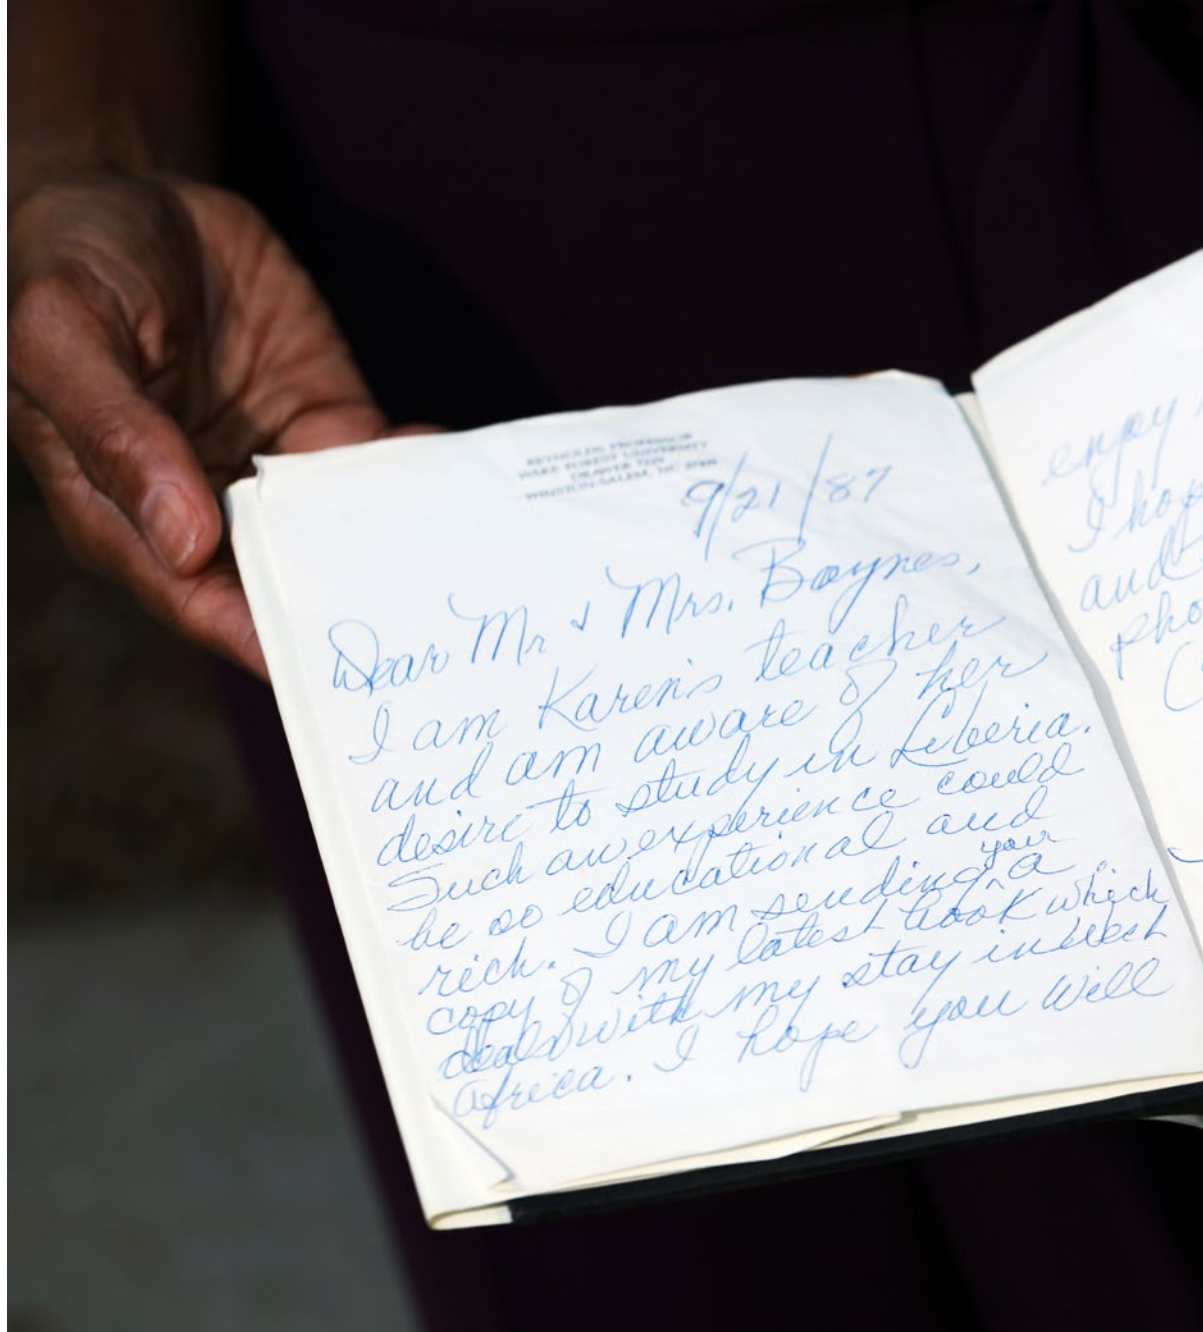 REYNOLDS PROFESSOR
WAKE FOREST UNIVERSITY
DRAWER
WINSTON-SALEM, NC
9/21/87
Dear Mr & Mrs. Baynes,
I am Karen's teacher
and am aware of her
desire to study in Liberia.
Such an experience could
be so educational and
rich. I am sending you a
copy of my latest book which
deals with my stay in West
Africa. I hope you will
enjoy
I hop
and
pho